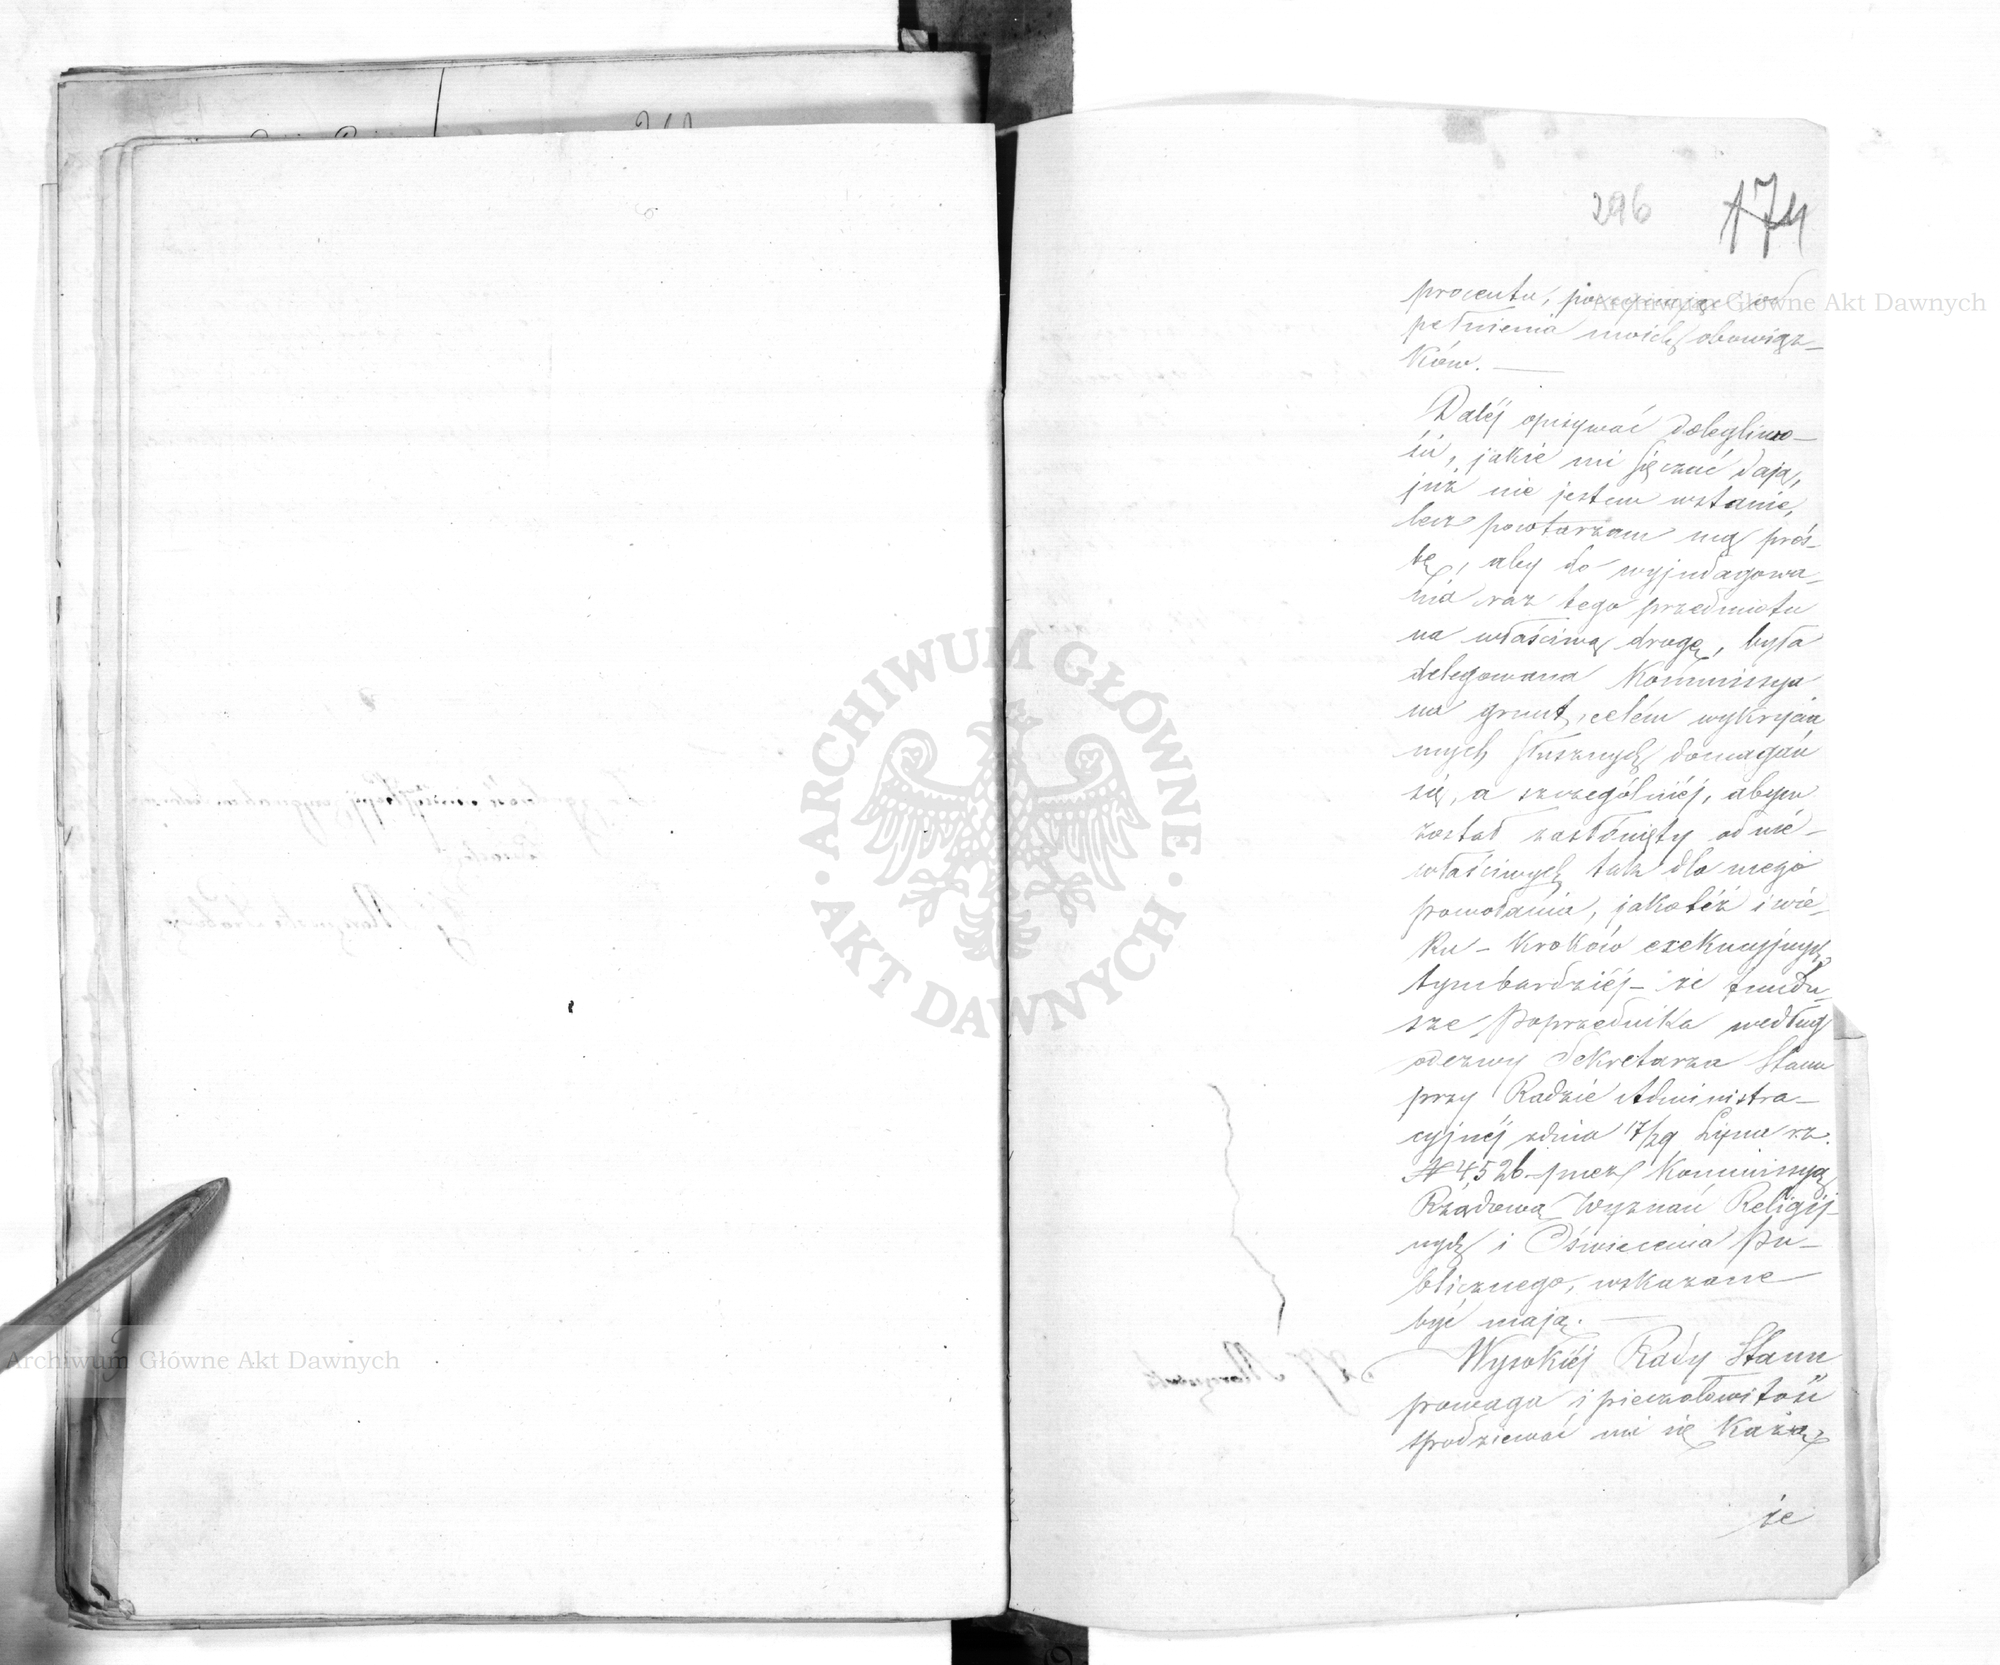 296 174
procentu, od
pełnienia moich obowiąz-
ków. —
Daléj opisywać dolegliwo-
ści, jakie mi się czuć dają,
już nie jestem wstanie,
lecz powtarzam mą proś-
bę, aby do wyjndagowa-
nia raz tego przedmiotu
na właściwą drogę, była
delegowana Kommissya
na grunt, celém wykrycia
mych słusznych domagań
się, a szczególniéj, abym
został zasłonięty od nie-
właściwych tak dla mego
powołania, jakotéż i wie-
ku – kroków exekucyjnych,
tymbardziéj – że fundu-
sze Poprzednika według
odezwy Sekretarza Stanu
przy Radzie Administra-
cyjnéj zdnia 17/29 Lipca rz.
N 4,526 przez Kommissyą
Rządową Wyznań Religij-
nych i Oświecenia Pu-
blicznego, wskazane
być mają. —
Wysokiéj Rady Stanu
powaga i pieczołowitość
spodziewać mi się każą,
że
Archiwum Główne Akt Dawnych
ARCHIWUM GŁÓWNE AKT DAWNYCH
Archiwum Główne Akt Dawnych